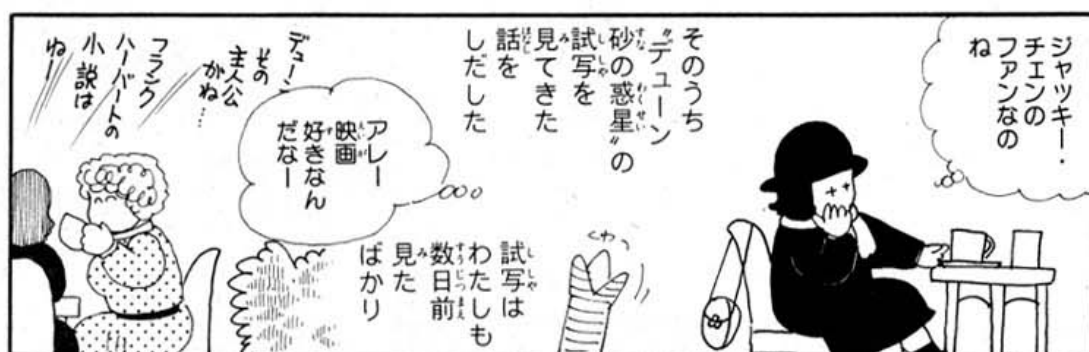 ジャッキー・
チェンの
ファンなの
ね
そのうち
“デューン
砂の惑星”の
試写を
見てきた
話を
しだした
くわっ
試写は
わたしも
数日前
見た
ばかり
アレー
映画
好きなん
だなー
デューン
その
主人公
がね…
フランク
ハーバートの
小説は
ねー